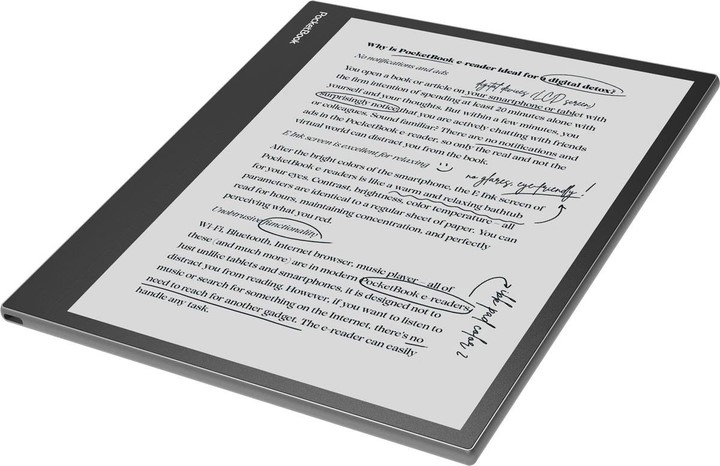 PocketBook
Why is PocketBook e-reader ideal for a digital detox?
No notifications and ads
digital devices (LCD screen)
You open a book or article on your smartphone or tablet with
the firm intention of spending at least 20 minutes alone with
yourself and your thoughts. But within a few minutes, you
surprisingly notice that you are actively chatting with friends
or colleagues. Sound familiar? There are no notifications and
ads in the PocketBook e-reader, so only the real and not the
virtual world can distract you from the book.
E Ink screen is excellent for relaxing :)
no glares, eye-friendly!
After the bright colors of the smartphone, the E Ink screen of
PocketBook e-readers is like a warm and relaxing bathtub
for your eyes. Contrast, brightness, color temperature – all
parameters are identical to a regular sheet of paper. You can
read for hours, maintaining concentration, and perfectly
perceiving what you red.
Unobtrusive functionality
Wi-Fi, Bluetooth, Internet browser, music player – all of
these (and much more) are in modern PocketBook e-readers,
Just unlike tablets and smartphones, it is designed not to
distract you from reading. However, if you want to listen to
music or search for something on the Internet, there's no
need to reach for another gadget. The e-reader can easily
handle any task.
inkpad color 2